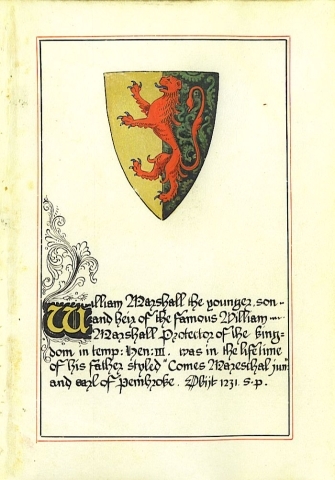 William Marshall the younger, son
and heir of the famous William
Marshall Protector of the king-
dom in temp: Hen: III. was in the lifetime
of his father styled "Comes Mareschal jun"
and earl of Pembroke. Obijt 1231. s.p.